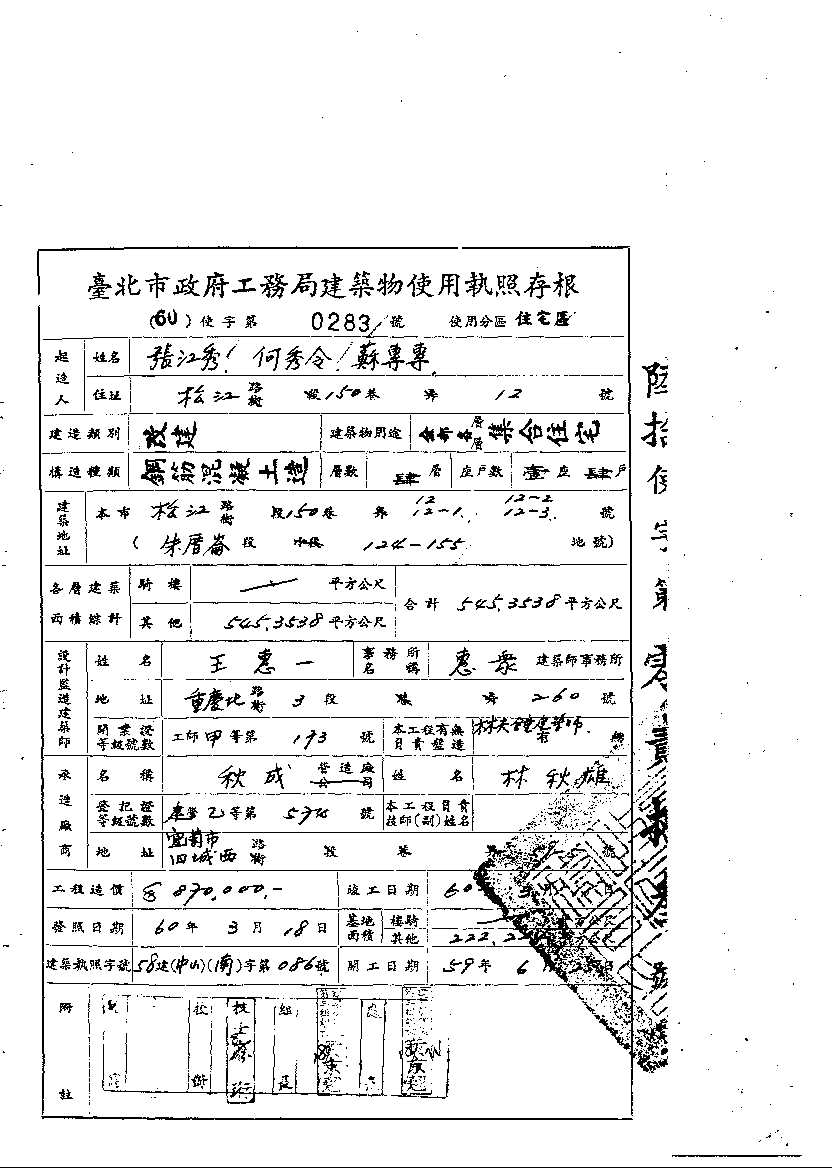 臺北市政府工務局建築物使用執照存根
(60)使字第 0283 號 使用分區 住宅區
起造人 姓名 張江秀 何秀令 蘇專專
住址 松江 路街 段 150 巷 弄 12 號
建造類別 改建 建築物用途 全部各層層 集合住宅
構造種類 鋼筋混凝土造 層數 肆 層 座戶數 壹 座 肆 戶
建築地址 本市 松江 路街 段 150 巷 弄 12 12-1. 12-2 12-3. 號
(朱厝崙 段 小段 124-155 地號)
各層建築面積綜計 騎樓 平方公尺 合計 545.3538 平方公尺
其他 545.3538 平方公尺
設計監造建築師 姓名 王惠一 事務所名稱 惠衆 建築師事務所
地址 重慶北 路街 3 段 巷 弄 260 號
開業證等級號數 工師 甲 等第 193 號 本工程有無負責監造 有 無
承造廠商 名稱 秋成 營造廠公司 姓名 林秋雄
登記證等級號數 乙 等第 號 本工程負責技師(副)姓名
地址 宜蘭市旧城西 路街 段 巷 號
工程造價 870,000.- 竣工日期 60
發照日期 60 年 3 月 18 日 基地面積 樓騎 平方公尺
其他 222.
建築執照字號 58建(中山)(南)字第 086 號 開工日期 59 年 6 月 日
附註 校 技士 組
陸拾使字第零貳捌叁號